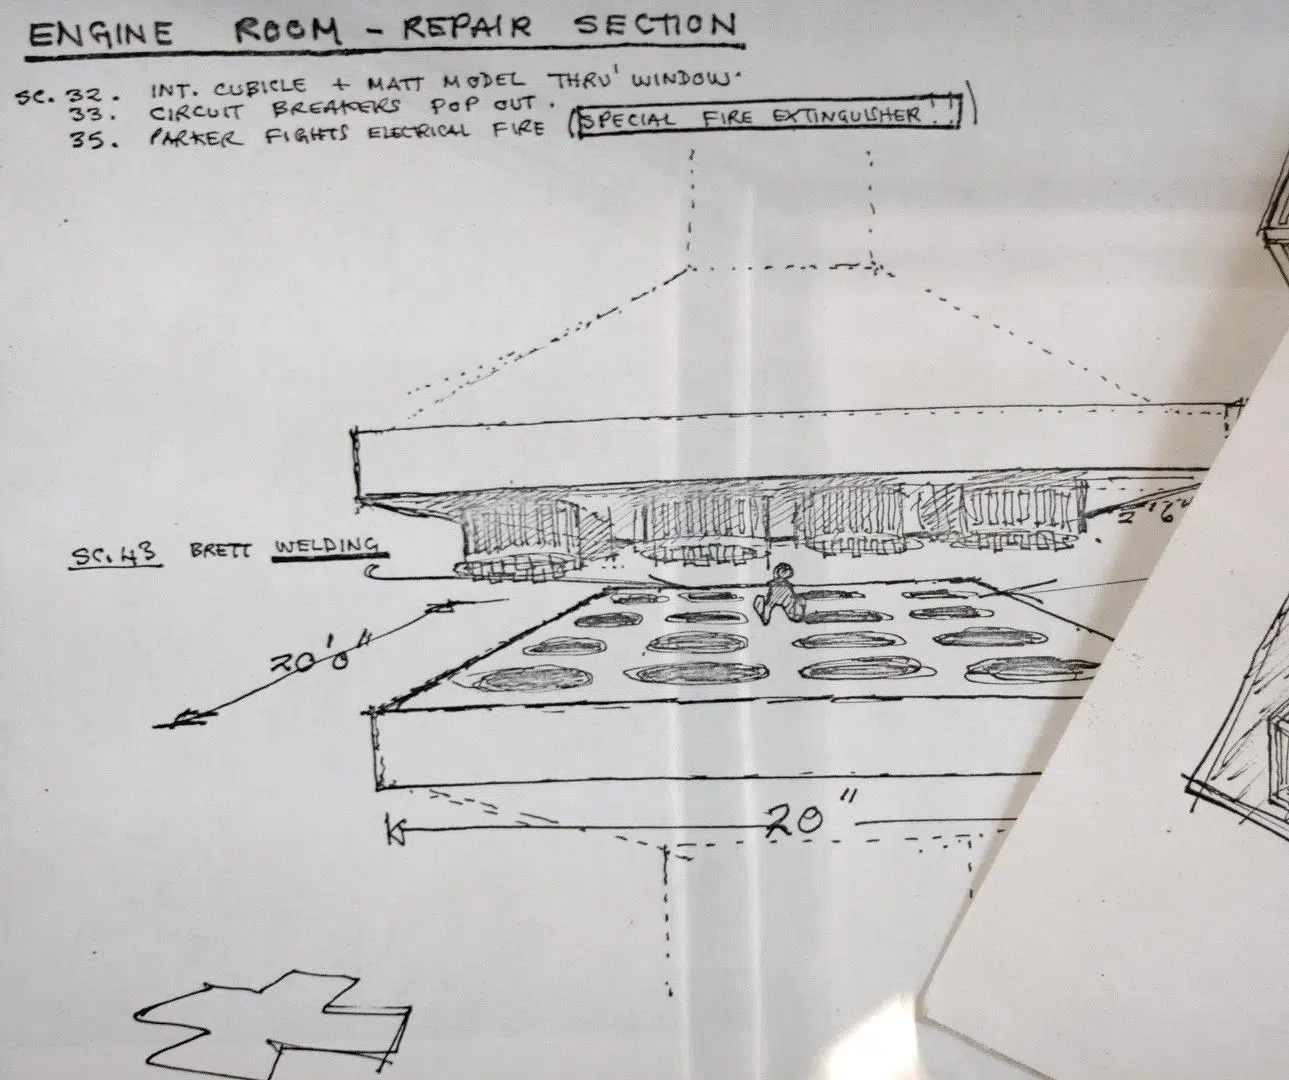 ENGINE ROOM - REPAIR SECTION
SC. 32. INT. CUBICLE + MATT MODEL THRU' WINDOW.
33. CIRCUIT BREAKERS POP OUT.
35. PARKER FIGHTS ELECTRICAL FIRE (SPECIAL FIRE EXTINGUISHER!!)
2'6"
SC. 43 BRETT WELDING
20'0"
20"